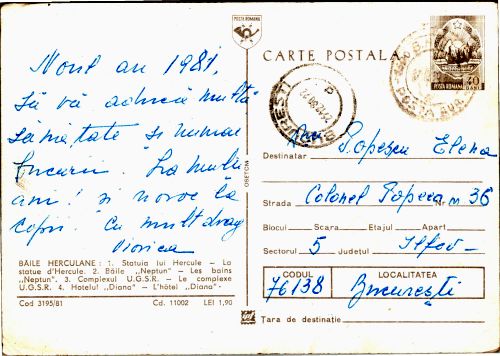 Noul an 1981,
să vă aducă multă
sănătate și numai
bucurii. La mulți
ani! și noroc la
copii. Cu mult drag
Viorica
BĂILE HERCULANE: 1. Statuia lui Hercule — La
statue d'Hercule. 2. Băile „Neptun" — Les bains
„Neptun". 3. Complexul U.G.S.R. — Le complexe
U.G.S.R. 4. Hotelul „Diana" — L'hôtel „Diana".
Cod 3195/81 Cd. 11002 LEI 1,90
POȘTA ROMÂNĂ
CARTE POȘTALĂ
POȘTA ROMÂNĂ 40
BUCUREȘTI
Destinatar Popescu Elena
Strada Colonel Popeea nr. 36
Blocul Scara Etajul Apart
Sectorul 5 județul Ilfov
CODUL LOCALITATEA
76138 București
Țara de destinație